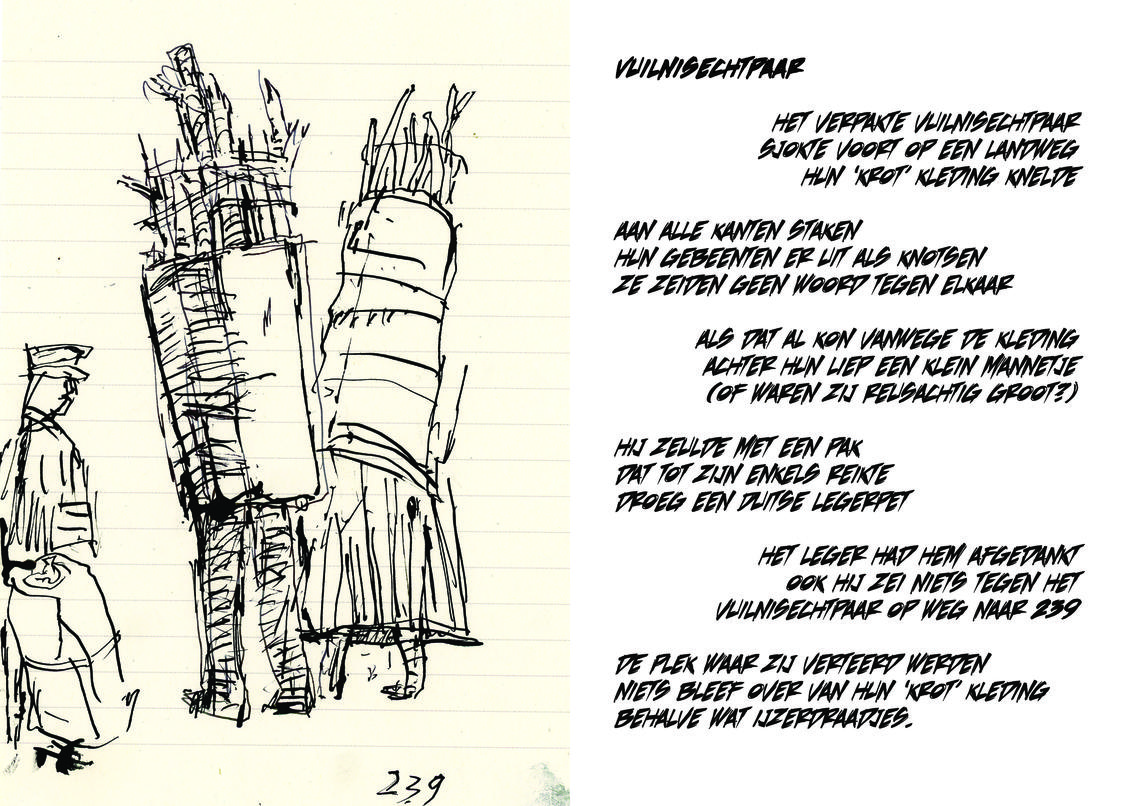 239
VUILNISECHTPAAR
HET VERPAKTE VUILNISECHTPAAR
SJOKTE VOORT OP EEN LANDWEG
HUN 'KROT' KLEDING KNELDE
AAN ALLE KANTEN STAKEN
HUN GEBEENTEN ER UIT ALS KNOTSEN
ZE ZEIDEN GEEN WOORD TEGEN ELKAAR
ALS DAT AL KON VANWEGE DE KLEDING
ACHTER HUN LIEP EEN KLEIN MANNETJE
(OF WAREN ZIJ REUSACHTIG GROOT?)
HIJ ZEULDE MET EEN PAK
DAT TOT ZIJN ENKELS REIKTE
DROEG EEN DUITSE LEGERPET
HET LEGER HAD HEM AFGEDANKT
OOK HIJ ZEI NIETS TEGEN HET
VUILNISECHTPAAR OP WEG NAAR 239
DE PLEK WAAR ZIJ VERTEERD WERDEN
NIETS BLEEF OVER VAN HUN 'KROT' KLEDING
BEHALVE WAT IJZERDRAADJES.